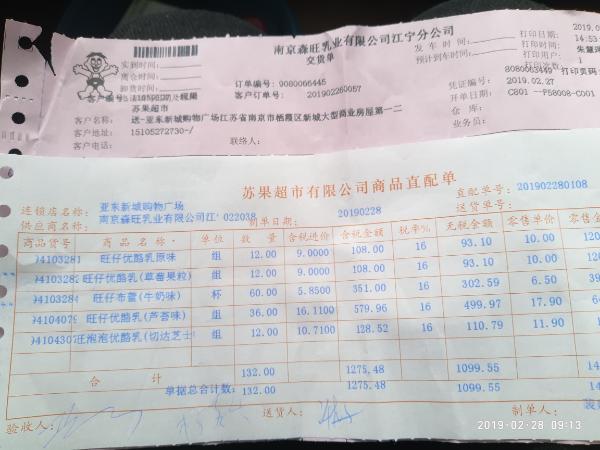 南京森旺乳业有限公司江宁分公司
交货单
2019.0
打印日期:
14:53:
打印时间:
发车时间:
朱慧
打印用户:
预计到车时间:
打印次数: 1
8080063449 打印页码:
实到时间:
离仓时间:
卸货时间:
订单编号:9080066445
客户订单号: 201902260057
凭证编号:
开单日期: 2019.02.27
仓库: C801 --P58008-C001
业务员:
客户编号:
苏果超市
客户名称: 送-亚东新城购物广场江苏省南京市栖霞区新城大型商业房屋第一二
客户地址: 15105272730-/
客户电话:
联络人:
苏果超市有限公司商品直配单
连锁店名称: 亚东新城购物广场
直配单号:201902280108
供应商名称: 南京森旺乳业有限公司江' 022038
制单日期: 20190228
送货单号:
商品货号 商品名称 单位 数量 含税进价 含税金额 税率% 无税金额 零售单价 零售金
04103281 旺仔优酪乳原味 组 12.00 9.0000 108.00 16 93.10 10.00 120
0410328 旺仔优酪乳(草莓果粒) 组 12.00 9.0000 108.00 16 93.10 10.00 12
04103284 旺仔布蕾(牛奶味) 杯 60.00 5.8500 351.00 16 302.59 6.50 39
0410407 旺仔优酪乳(芦荟味) 组 36.00 16.1100 579.96 16 499.97 17.90 64
0410430 旺泡泡优酪乳(切达芝士 组 12.00 10.7100 128.52 16 110.79 11.90 14
合计 132.00 1275.48 1099.55 14
单据总合计数: 132.00 1275.48 1099.55 14
验收人: 送货人: 制单人:
2019-02-28 09:13